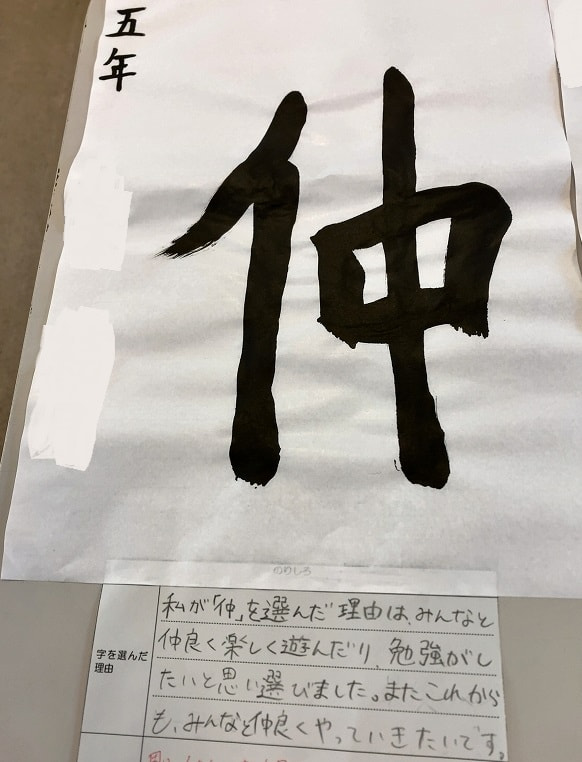 五年
仲
のりしろ
字を選んだ
理由
私が「仲」を選んだ理由は、みんなと
仲良く楽しく遊んだり、勉強がし
たいと思い選びました。またこれから
も、みんなと仲良くやっていきたいです。